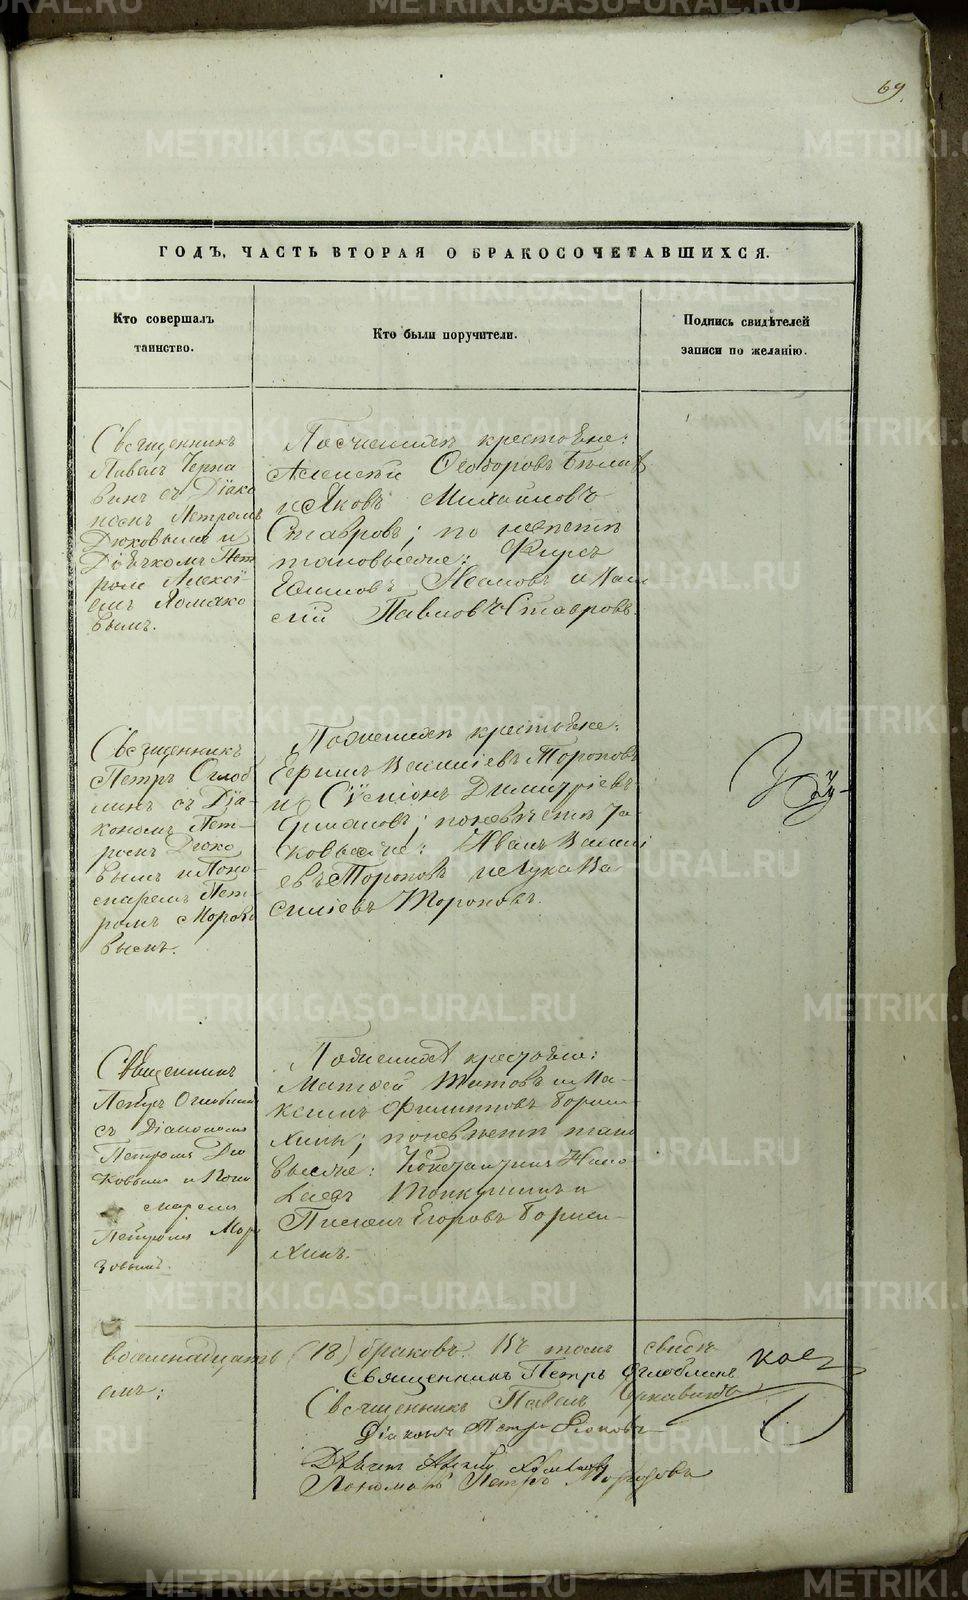 69.
ГОДЪ, ЧАСТЬ ВТОРАЯ О БРАКОСОЧЕТАВШИХСЯ.
Кто совершалъ
таинство.
Кто были поручители.
Подпись свидѣтелей
записи по желанію.
Священникъ
Павелъ Черка
винъ съ Діако
номъ Петромъ
Дюковымъ и
Дьячкомъ
Алексі
емъ
вымъ.
По женихѣ крестьяне:
Алексѣй Ѳеодоровъ
и Яковъ Михайловъ
Ставровъ; по невѣстѣ
таковыеже: Фирсъ
Ефимовъ Ивановъ и
сій Павловъ Ставровъ.
Священникъ
Петръ Оглоб
линъ съ Діа-
кономъ Пет-
ромъ Дюко
вымъ и Поно-
маремъ Пет-
ромъ Морозо
вымъ.
По женихѣ крестьяне:
Ермилъ Василіевъ Тороповъ
и Сѵмеонъ Димитріевъ
Ермаковъ; по невѣстѣ та-
ковыеже: Иванъ Васили
евъ Тороповъ и Лука Ва
силіевъ Тороповъ.
Священникъ
Петръ Оглоблинъ
съ Діакономъ
Петромъ Дю
ковымъ и Поно
маремъ
Петромъ Моро
зовымъ.
По женихѣ крестьяне:
Матвей Титовъ и Ма-
ксимъ Филипповъ Борми
хины; по невѣстѣ тако
выеже: Константинъ Нико
лаевъ и
Пименъ Егоровъ Борми-
хинъ.
восемнадцать (18) браковъ. Въ томъ свидѣ
емъ:
Священникъ Петръ Оглоблинъ
Священникъ Павелъ Черкавинъ
Діаконъ Петръ Дюковъ
Дьячекъ Алексѣй
Пономарь Петръ Морозовъ
METRIKI.GASO-URAL.RU